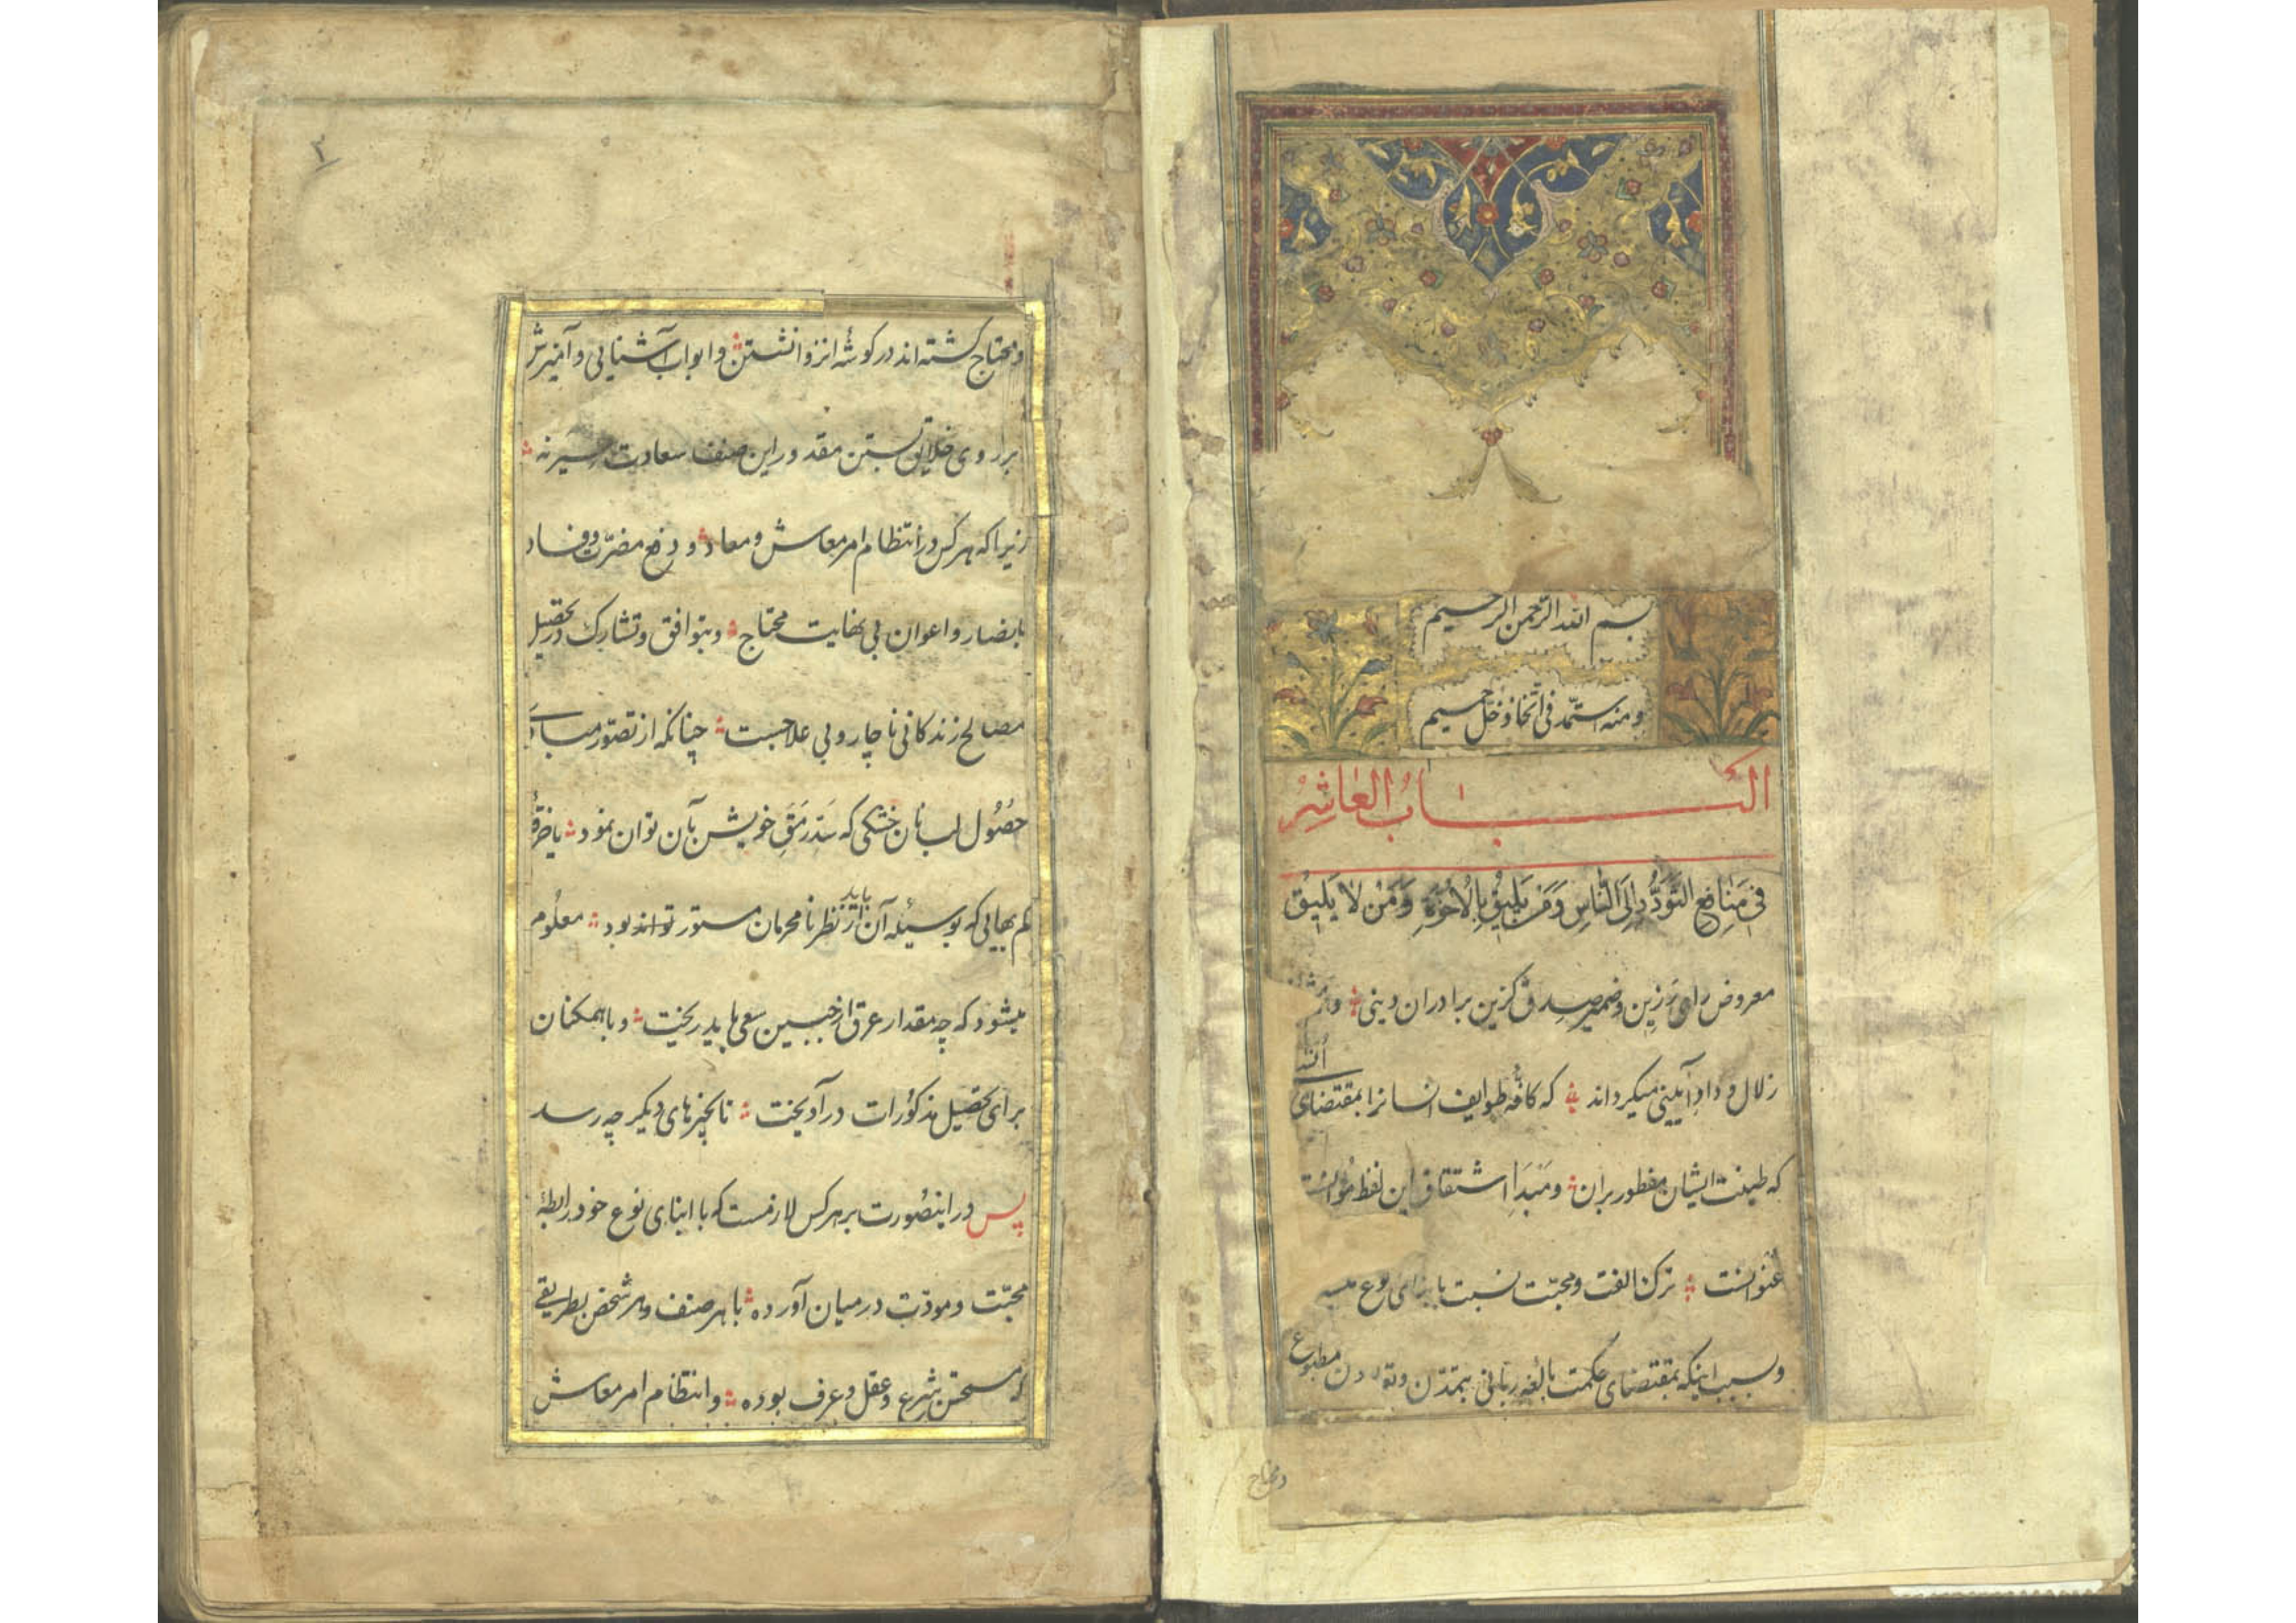 بسم الله الرحمن الرحیم
ومنه استمد فی اتخاذ خل حمیم
الکتاب العاشر
فِی مَنَافِعِ التَّوَدُّدِ اِلَی النَّاسِ وَمَنْ یَلِیقُ بِالْاُخُوَّةِ وَمَنْ لَا یَلِیقُ
معروض رای رزین وضمیر صدق گزین برادران دینی ؞
زلال وداد آیینی میگرداند ؞ که کافّهٔ طوایف انسانرا بمقتضای اُنس
که طینت ایشان مفطور بران ؞ ومَبْدَأ اشتقاق این لفظ
عنوانست ؞ ترک الفت ومحبّت نسبت بابنای نوع
وسبب اینکه بمقتضای حکمت بالغهٔ ربّانی بتمدّن مطبوع
ومحتاج
۲
ومحتاج گشته اند در گوشهٔ انزوا نشستن ؞ وابواب آشنایی وآمیزش
بر روی خلایق بستن مقدور این صنف سعادت سیر نه ؞
زیرا که هر کس در انتظام امر معاش ومعاد ؞ ودفع مضرّت وفساد
بانصار واعوان بی نهایت محتاج ؞ وبتوافق وتشارک در تحصیل
مصالح زندگانی ناچار وبی علاجست ؞ چنانکه از تصوّر مبادی
حصُول لب نان خشکی که سَدّ رَمَقِ خویش بآن توان نمود ؞ یا خرقهٔ
کم بهایی که بوسیلهٔ آن از نظر نامحرمان مستور تواند بود ؞ معلُوم
باید
میشود که چه مقدار عرق از جبین سعی باید ریخت ؞ وبا همکنان
برای تحصیل مذکوُرات در آویخت ؞ تا بچیزهای دیگر چه رسد
پس در اینصُورت بر هر کس لازمست که با ابنای نوع خود رابطهٔ
محبّت ومودّت در میان آورده ؞ با هر صنف وهر شخص بطریقی
که مستحسن شرع وعقل وعرف بوده ؞ وانتظام امر معاش